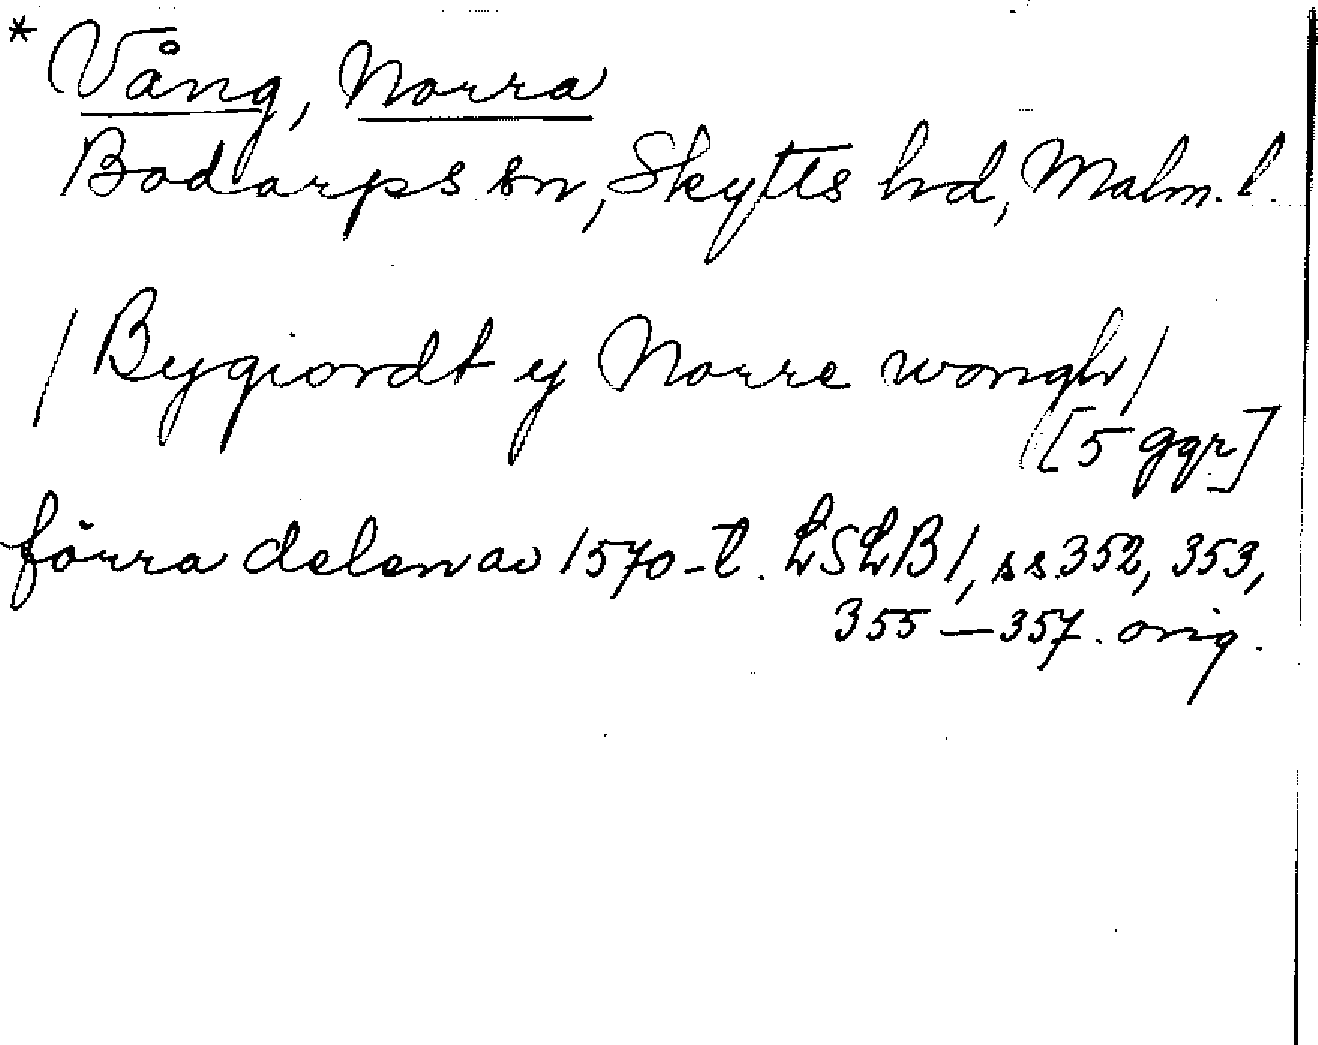 * Vång, Norra
Bodarps sn, Skytts hd, Malm. l.
/ Bygiordt y Norre wongh /
[5 ggr]
förra delen av 1570-t. LSLB 1, ss. 352, 353,
355 — 357. orig.